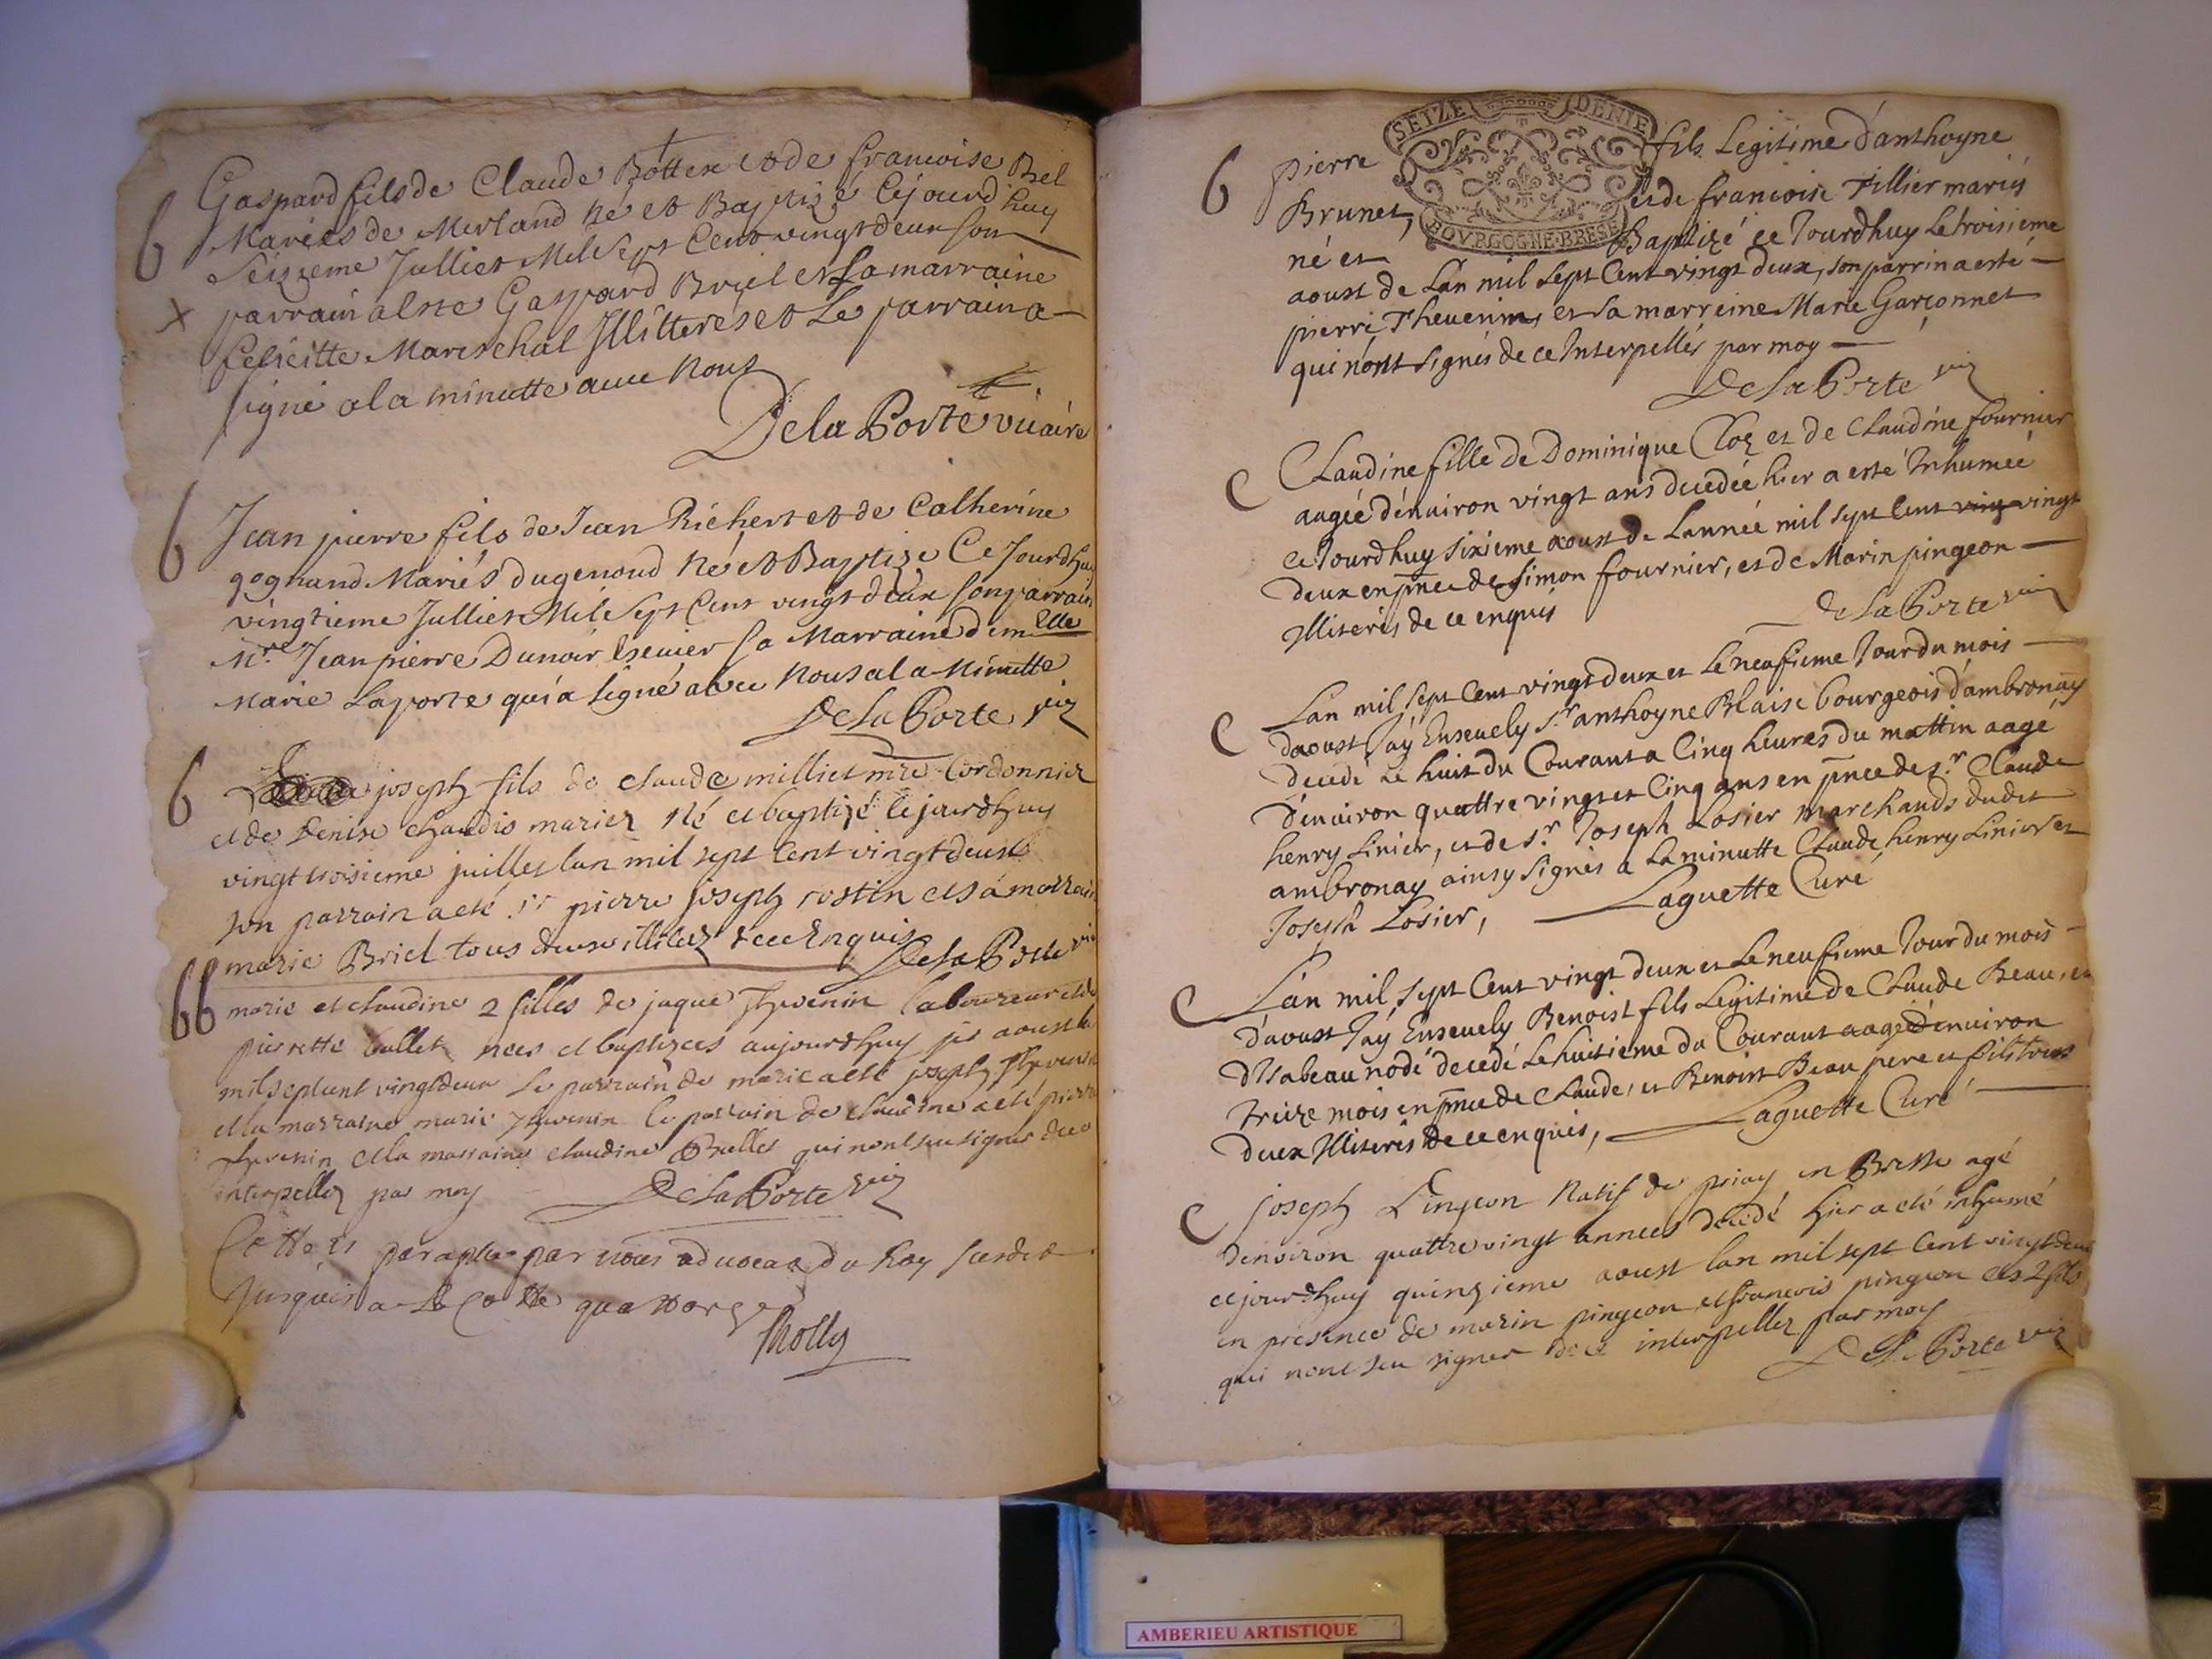 6
Gaspard fils de Claude Bottex et de francoise Briel
Mariés de Merland né et Baptizé Cejourd'huy
Séizieme Julliet Mil Sept Cent vingt deux son
x parrain a esté Gaspard Briel et sa marraine
felicitte Mareschal Illitteres et Le parrain a
signé a la minutte avec nous
De la Porte vicaire
6
Jean pierre fils de Jean Richert et de Catherine
gognand Mariés dugenoud né et Baptizé Ce Jourd'huy
vingtieme Julliet Mil Sept Cent vingt deux son parrain
Mre Jean pierre Dunoir la Marraine dem Elle
Marie Laporte qui a signé avec nous a la Minutte
De la Porte vic
6
joseph fils de claude milliet mre Cordonnier
et de denise mariez né et baptizé cejourdhuy
vingt troisieme juillet lan mil sept Cent vingt deux
son parrain a eté sr pierre joseph rostin et sa marraine
marie Briel tous deux de ce Enquis
De la Porte vic
66
marie et claudine 2 filles de jaque Thevenin laboureur et de
pierrette nees et baptizees aujourdhuy aoust
mil sept cent vingt deux le parrain de marie a eté joseph Thevenin
et la marraine marie Thevenin le parrain de claudine a eté pierre
Thevenin et la marraine claudine Brulles qui nont seu signer de ce
interpellez par moy
De la Porte vic
Cotte et paraphe par nous advocat du Roy susdit
Jusques a la Cotte quatorze
Cholly
SEIZE DENIE
BOVRGOGNE·BRESE
6
pierre fils Legitime d'anthoyne
Brunet, et de francoise Tillier mariés
né et Baptizé ce Jourdhuy Le troisieme
aoust de L'an mil sept Cent vingt deux, son parrin a esté
pierre Thevenin, et sa marreine Marie Garçonnet
qui n'ont signés de ce Interpellés par moy
De la Porte vic
C
Claudine fille de Dominique Cloz et de Claudine fournier
aagée d'environ vingt ans decedée hier a esté Inhumée
ce Jourdhuy sixieme aoust de L'année mil sept Cent ving vingt
deux en pnce de Simon fournier, et de Marin pingeon
Illiterés de ce enquis
De la Porte vic
C
Lan mil sept Cent vingt deux et Le neufieme Jour du mois
d'aoust J'ay Ensevely Sr anthoyne Blaise bourgeois d'ambronay
decedé Le huit du Courant a Cinq heures du mattin aagé
d'environ quattre vingt et Cinq ans en pnce de sr Claude
henry Linier, et de sr Joseph Losier marchands dudit
ambronay ainsy signés a La minutte Claude henry Linier et
Joseph Losier,
Laguette Curé
C
L'an mil sept Cent vingt deux et Le neufieme Jour du mois
d'aoust J'ay Ensevely Benoist fils Legitime de Claude Beau, et
d'Isabeau nodé decedé Le huitieme du Courant aagé d'environ
treize mois en pnce de Claude, et Benoist Beau pere et fils tous
deux Illiterés de ce enquis,
Laguette Curé
C
joseph Pingeon Natif de priay en Bresse agé
denviron quattre vingt annees decedé hier a eté inhumé
cejourdhuy quinzieme aoust lan mil sept Cent vingt deux
en presence de marin pingeon et francois pingeon ses 2 fils
qui nont seu signer de ce interpellez par moy
De la Porte vic
AMBERIEU ARTISTIQUE